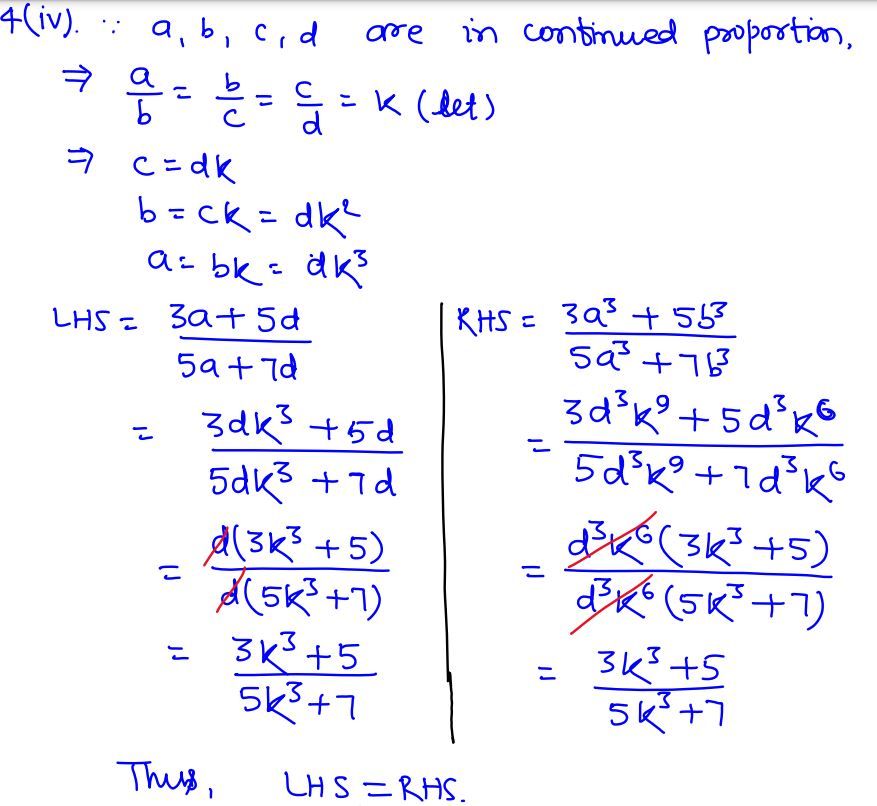 4(iv). ∵ a, b, c, d are in continued proportion,
⇒ a/b = b/c = c/d = k (let)
⇒ c = dk
b = ck = dk²
a = bk = dk³
LHS = (3a + 5d)/(5a + 7d)
= (3dk³ + 5d)/(5dk³ + 7d)
= d(3k³ + 5)/d(5k³ + 7)
= (3k³ + 5)/(5k³ + 7)
RHS = (3a³ + 5b³)/(5a³ + 7b³)
= (3d³k⁹ + 5d³k⁶)/(5d³k⁹ + 7d³k⁶)
= d³k⁶(3k³ + 5)/d³k⁶(5k³ + 7)
= (3k³ + 5)/(5k³ + 7)
Thus, LHS = RHS.